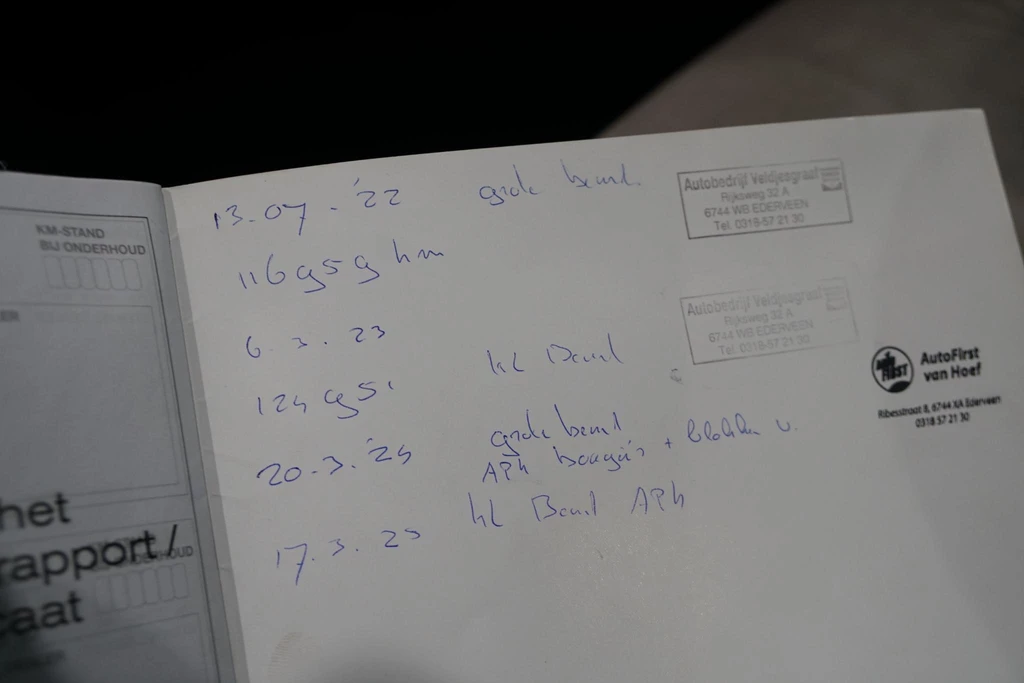 KM-STAND
BIJ ONDERHOUD
het
rapport/
caat
13-07-'22 grote beurt.
116959 km
Autobedrijf Veldjesgraaf
Rijksweg 32 A
6744 WB EDERVEEN
Tel. 0318-57 21 30
6.3.23
kl Beurt
124951
Autobedrijf Veldjesgraaf
Rijksweg 32 A
6744 WB EDERVEEN
Tel. 0318-57 21 30
20-3.'24 grote beurt
APK bougie's + blokken v.
17.3.25 kl Beurt APK
AutoFirst
van Hoef
Ribesstraat 8, 6744 XA Ederveen
0318 57 21 30